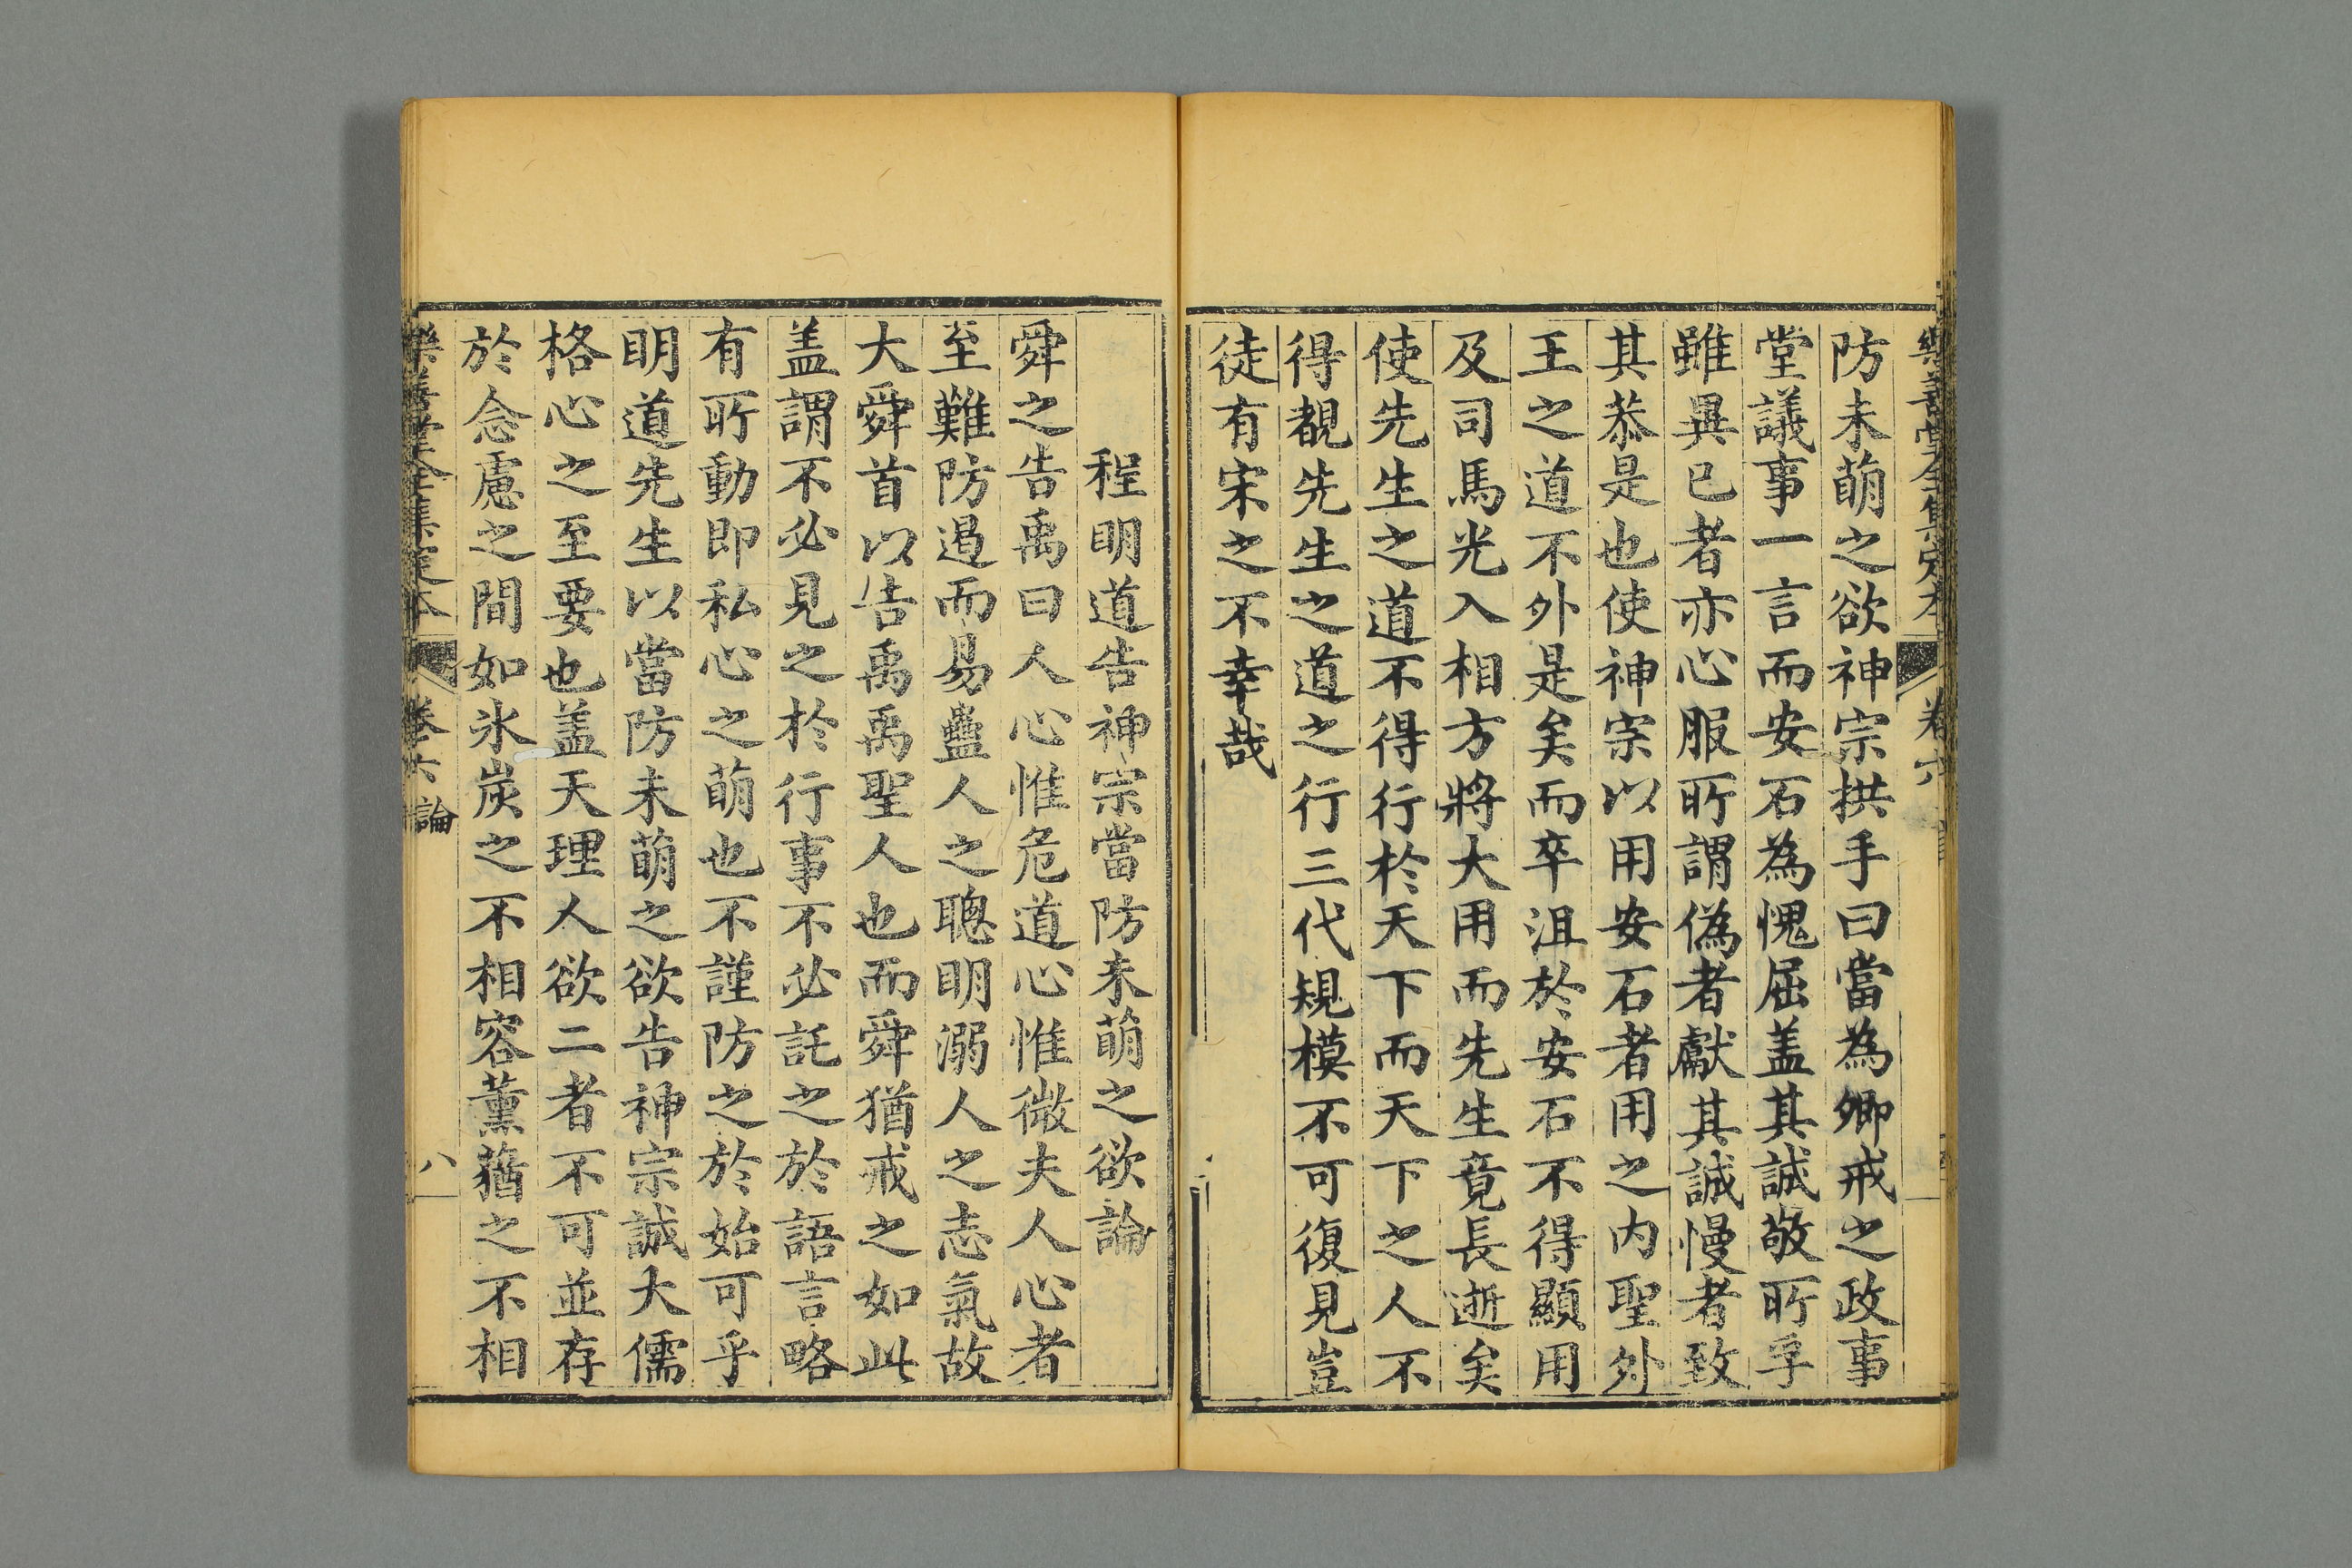 防未萌之欲神宗拱手曰當為卿戒之政事
堂議事一言而安石為愧屈盖其誠敬所孚
雖異已者亦心服所謂偽者獻其誠慢者致
其恭是也使神宗以用安石者用之内聖外
王之道不外是矣而卒沮於安石不得顯用
及司馬光入相方將大用而先生竟長逝矣
使先生之道不得行於天下而天下之人不
得覩先生之道之行三代規模不可復見豈
徒有宋之不幸哉
程明道告神宗當防未萌之欲論
舜之告禹曰人心惟危道心惟微夫人心者
至難防遏而易蠱人之聰明溺人之志氣故
大舜首以告禹禹聖人也而舜猶戒之如此
盖謂不必見之於行事不必託之於語言略
有所動即私心之萌也不謹防之於始可乎
明道先生以當防未萌之欲告神宗誠大儒
格心之至要也盖天理人欲二者不可並存
於念慮之間如氷炭之不相容薰蕕之不相
樂善堂全集定本 卷六 論 八